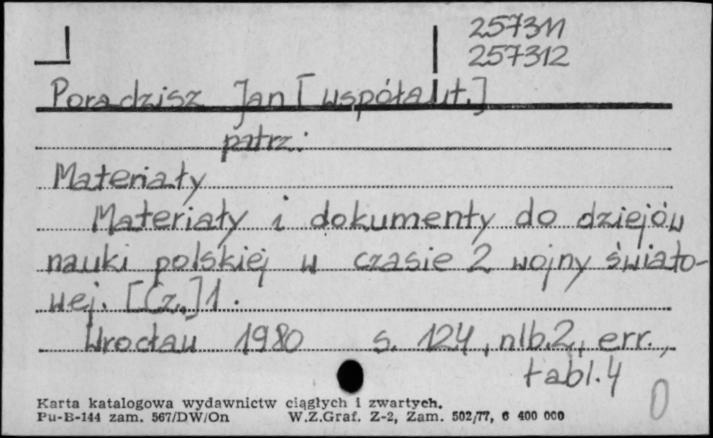 257311
257312
Poradzisz Jan [współaut.]
patrz:
Materiały
Materiały i dokumenty do dziejów
nauki polskiej w czasie 2 wojny świato-
wej. [Cz.] 1.
Wrocław 1980 s. 124, nlb.2, err.,
tabl.4
0
Karta katalogowa wydawnictw ciągłych i zwartych.
Pu-B-144 zam. 567/DW/On W.Z.Graf. Z-2, Zam. 502/77, 6 400 000